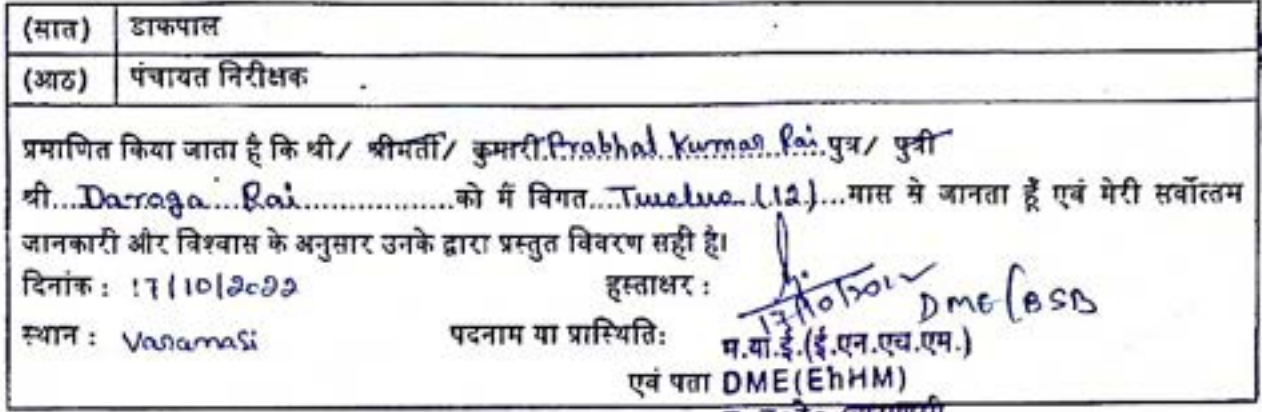 (सात) डाकपाल
(आठ) पंचायत निरीक्षक
प्रमाणित किया जाता है कि श्री/ श्रीमती/ कुमारी Prabhal Kumar Rai पुत्र/ पुत्री
श्री...Daroga...Rai..................को मैं विगत...Twelve (12)...मास से जानता हूँ एवं मेरी सर्वोत्तम
जानकारी और विश्वास के अनुसार उनके द्वारा प्रस्तुत विवरण सही है।
दिनांक : 17/10/2022 हस्ताक्षर :
17/10/2022 DME/BSB
स्थान : Varanasi पदनाम या प्रास्थिति: म.यां.ई.(ई.एन.एच.एम.)
एवं पता DME(EnHM)